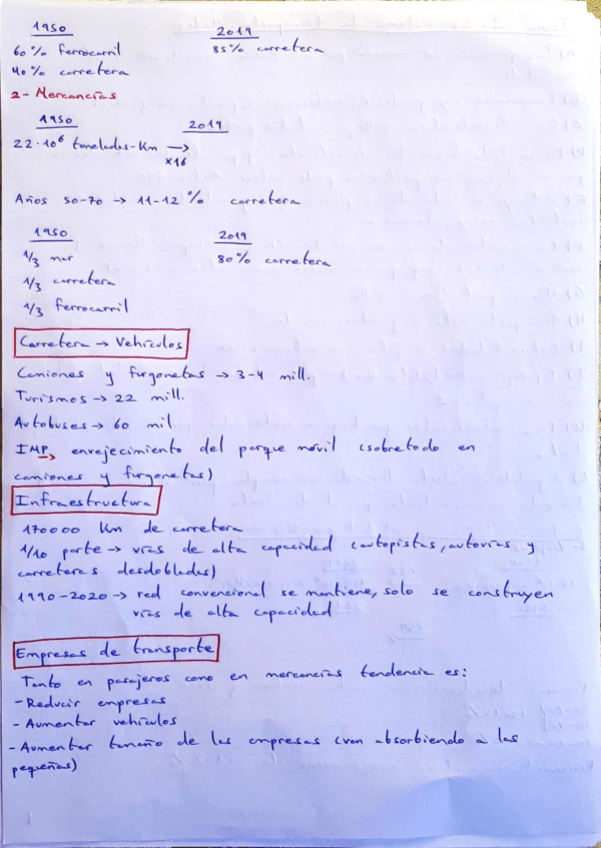 1950 2019
60% ferrocarril 85% carretera
40% carretera
2- Mercancías
1950 2019
22·10⁶ toneladas-Km →
x16
Años 50-70 → 11-12% carretera
1950 2019
1/3 mar 80% carretera
1/3 carretera
1/3 ferrocarril
Carretera → Vehículos
Camiones y furgonetas → 3-4 mill.
Turismos → 22 mill.
Autobuses → 60 mil
IMP → envejecimiento del parque móvil (sobretodo en
camiones y furgonetas)
Infraestructura
170000 Km de carretera
1/10 parte → vías de alta capacidad (autopistas, autovías y
carreteras desdobladas)
1990-2020 → red convencional se mantiene, solo se construyen
vías de alta capacidad
Empresas de transporte
Tanto en pasajeros como en mercancías tendencia es:
- Reducir empresas
- Aumentar vehículos
- Aumentar tamaño de las empresas (van absorbiendo a las
pequeñas)